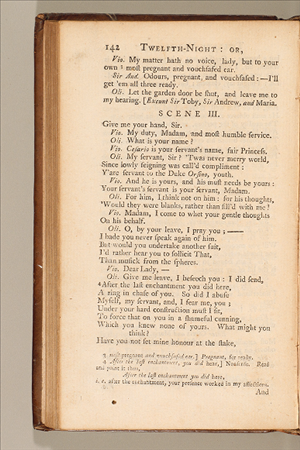 142 TWELFTH-NIGHT: OR,
Vio. My matter hath no voice, lady, but to your
own ³ most pregnant and vouchsafed ear.
Sir And. Odours, pregnant, and vouchsafed:—I'll
get 'em all three ready.
Oli. Let the garden door be shut, and leave me to
my hearing. [Exeunt Sir Toby, Sir Andrew, and Maria.
SCENE III.
Give me your hand, Sir.
Vio. My duty, Madam, and most humble service.
Oli. What is your name?
Vio. Cesario is your servant's name, fair Princess.
Oli. My servant, Sir? 'Twas never merry world,
Since lowly feigning was call'd compliment:
Y'are servant to the Duke Orsino, youth.
Vio. And he is yours, and his must needs be yours:
Your servant's servant is your servant, Madam.
Oli. For him, I think not on him: for his thoughts,
'Would they were blanks, rather than fill'd with me!
Vio. Madam, I come to whet your gentle thoughts
On his behalf.
Oli. O, by your leave, I pray you;——
I bade you never speak again of him.
But would you undertake another suit,
I'd rather hear you to sollicit That,
Than musick from the spheres.
Vio. Dear Lady, —
Oli. Give me leave, I beseech you: I did send,
⁴ After the last enchantment you did here,
A ring in chase of you. So did I abuse
Myself, my servant, and, I fear me, you;
Under your hard construction must I sit,
To force that on you in a shameful cunning,
Which you knew none of yours. What might you
think?
Have you not set mine honour at the stake,
3 most pregnant and vouchsafed ear.] Pregnant, for ready.
4 After the last enchantment, you did here,] Read
and point it thus,
After the last enchantment you did here,
i. e. after the enchantment, your presence worked in my affections.
And